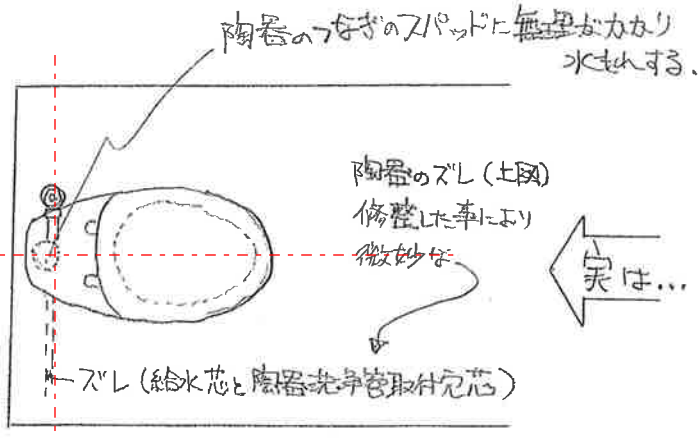 陶器のつなぎのスパッドに無理がかかり
水もれする、
陶器のズレ(上図)
修整した事により
微妙な
実は…
ズレ(給水芯と陶器洗浄管取付穴芯)